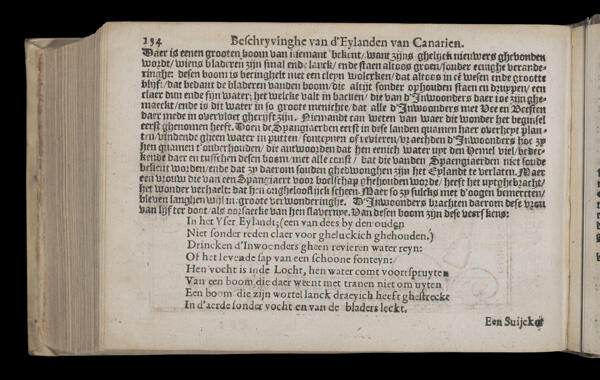 134 Beschryvinghe van d'Eylanden van Canarien.
Daer is eenen grooten boom van niemant bekent/ want zijns ghelijck nieuwers ghevonden
wordt/ wiens bladeren zijn smal ende lanck/ ende staen altoos groen/ sonder eenighe verande-
ringhe: desen boom is beringhelt met een cleyn wolcxken/ dat altoos in eē wesen ende grootte
blijft/ dat bedaut de bladeren van den boom/ die altijt sonder ophouden staen en druppen/ een
claer dun ende fijn water/ het welcke valt in backen/ die van d'Inwoonders daer toe zijn ghe-
maeckt/ ende is dit water in so groote menichte/ dat alle d'Inwoonders met Vee en Beesten
daer mede in overvloet gherijft zijn. Niemandt can weten van waer dit wonder het beginsel
eerst ghenomen heeft. Doen de Spangiaerden eerst in dese landen quamen haer overheyt plan-
ten/ vindende gheen water in putten/ fonteynen of revieren/ vraechden d'Inwoonders hoe zy
hen quamen t'onderhouden/ die antwoorden dat hen eenich water upt den Hemel viel/ bedec-
kende daer en tusschen desen boom/ met alle const/ dat die van den Spaengiaerden niet soude
bekent worden/ ende dat zy daerom souden ghedwonghen zijn het Eylandt te verlaten. Maer
een vrouw die van een Spangiaert voor boelschap ghehouden worde/ heeft het uptghebracht/
het wonder verhaelt: dat hen onghelooflijck scheen. Maer so zy sulcks met d'oogen bemercten/
bleven langhen wijl in groote verwonderinghe. D'Inwoonders brachten daerom dese vrou
van lijf ter doot/ als oorsaecke van hen slavernye. Van desen boom zijn dese veerskens:
In het Yser Eylandt; (een van dees by den ouden
Niet sonder reden claer voor gheluckich ghehouden.)
Drincken d'Inwoonders gheen revieren water reyn:
Of het levende sap van een schoone fonteyn:
Hen vocht is in de Locht, hen water comt voortspruyten
Van een boom, die daer weent met tranen niet om uyten
Een boom die zijn wortel lanck draeyich heeft ghestreckt
In d'aerde sonder vocht en van de bladers leckt.
Een Suijcker